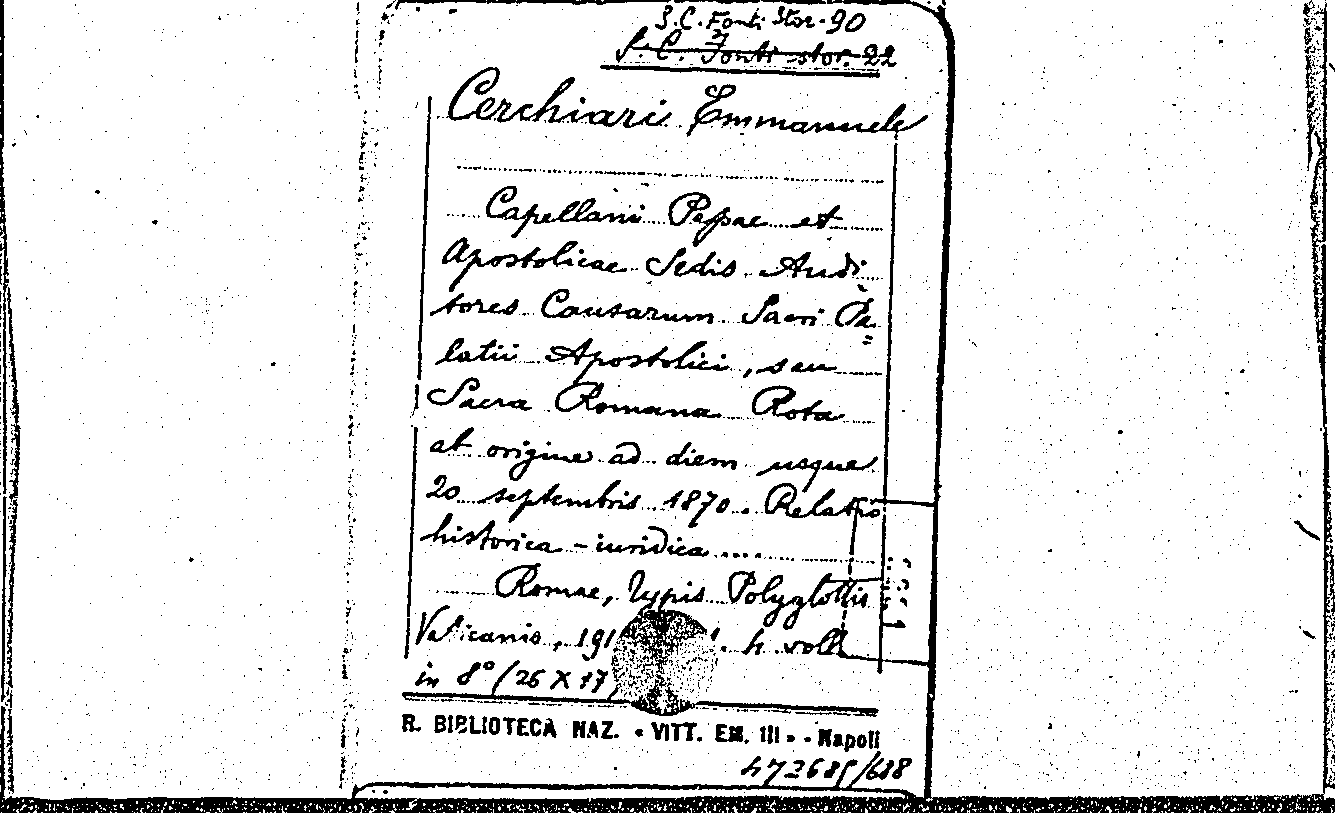 S.C. Fonti Stor. 90
S. C. Fonti stor. 22
Cerchiari Emmanuele
Capellani Papae et
Apostolicae Sedis Audi
tores Causarum Sacri Pa=
latii Apostolici, seu
Sacra Romana Rota
ab origine ad diem usque
20 septembris 1870. Relatio
historica - iuridica ....
Romae, Typis Polyglottis
Vaticanis, 191 4 voll
in 8° (26 X 17
R. BIBLIOTECA NAZ. « VITT. EM. III » - Napoli
473685/688